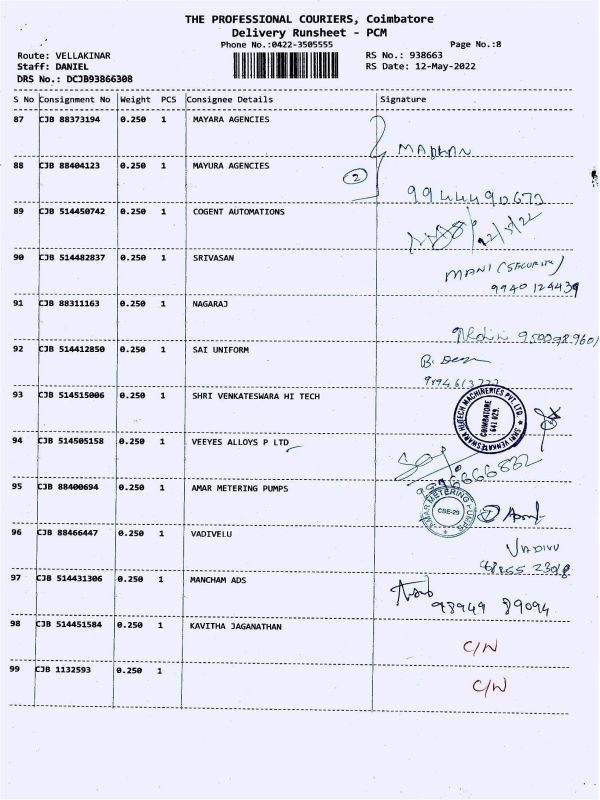 THE PROFESSIONAL COURIERS, Coimbatore
Delivery Runsheet - PCM
Phone No.:0422-3505555 Page No.:8
Route: VELLAKINAR RS No.: 938663
Staff: DANIEL RS Date: 12-May-2022
DRS No.: DCJB93866308
S No Consignment No Weight PCS Consignee Details Signature
87 CJB 88373194 0.250 1 MAYARA AGENCIES
MADHAN
88 CJB 88404123 0.250 1 MAYURA AGENCIES
2
9944490673
89 CJB 514450742 0.250 1 COGENT AUTOMATIONS
12/5/22
90 CJB 514482837 0.250 1 SRIVASAN
MANI (SECURITY)
9940124439
91 CJB 88311163 0.250 1 NAGARAJ
92 CJB 514412850 0.250 1 SAI UNIFORM
93 CJB 514515006 0.250 1 SHRI VENKATESWARA HI TECH
SHRI VENKATESWARA HITECH MACHINERIES PVT. LTD.
COIMBATORE
641 029.
94 CJB 514505158 0.250 1 VEEYES ALLOYS P LTD
95 CJB 88400694 0.250 1 AMAR METERING PUMPS
AMAR METERING PUMPS
CBE-29
96 CJB 88466447 0.250 1 VADIVELU
VADIVU
97 CJB 514431306 0.250 1 MANCHAM ADS
98949 89094
98 CJB 514451584 0.250 1 KAVITHA JAGANATHAN
C/N
99 CJB 1132593 0.250 1
C/N